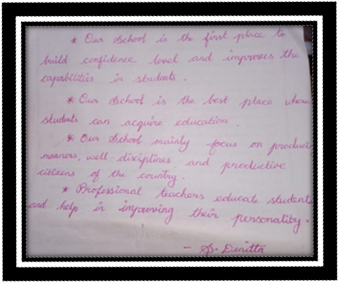 * Our School is the first place to
build confidence level and improves the
capabilities in students.
* Our School is the best place where
students can acquire education
* Our School mainly focus on
manners, well disciplines and productive
citizens of the country.
* Professional teachers educate students
and help in improving their personality.